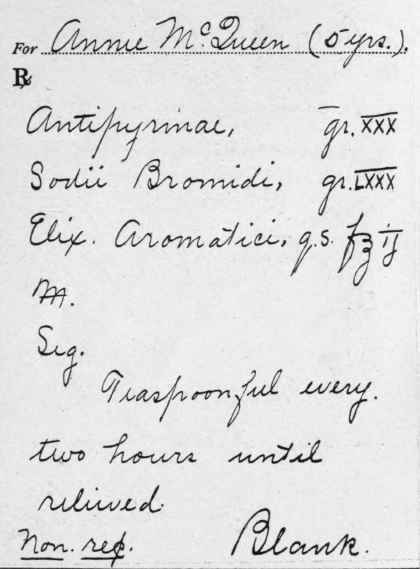 For Annie McQueen (5 yrs.).
℞
Antipyrinae, gr. xxx
Sodii Bromidi, gr. Lxxx
Elix. Aromatici, q.s. f℥ ij
M.
Sig.
Teaspoonful every.
two hours until
relieved.
Non. rep. Blank.